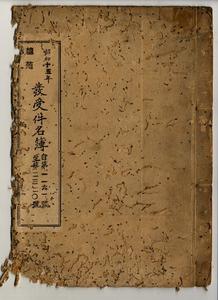 昭和十五年
發受件名簿
自第一一六一號
至第一三二〇號